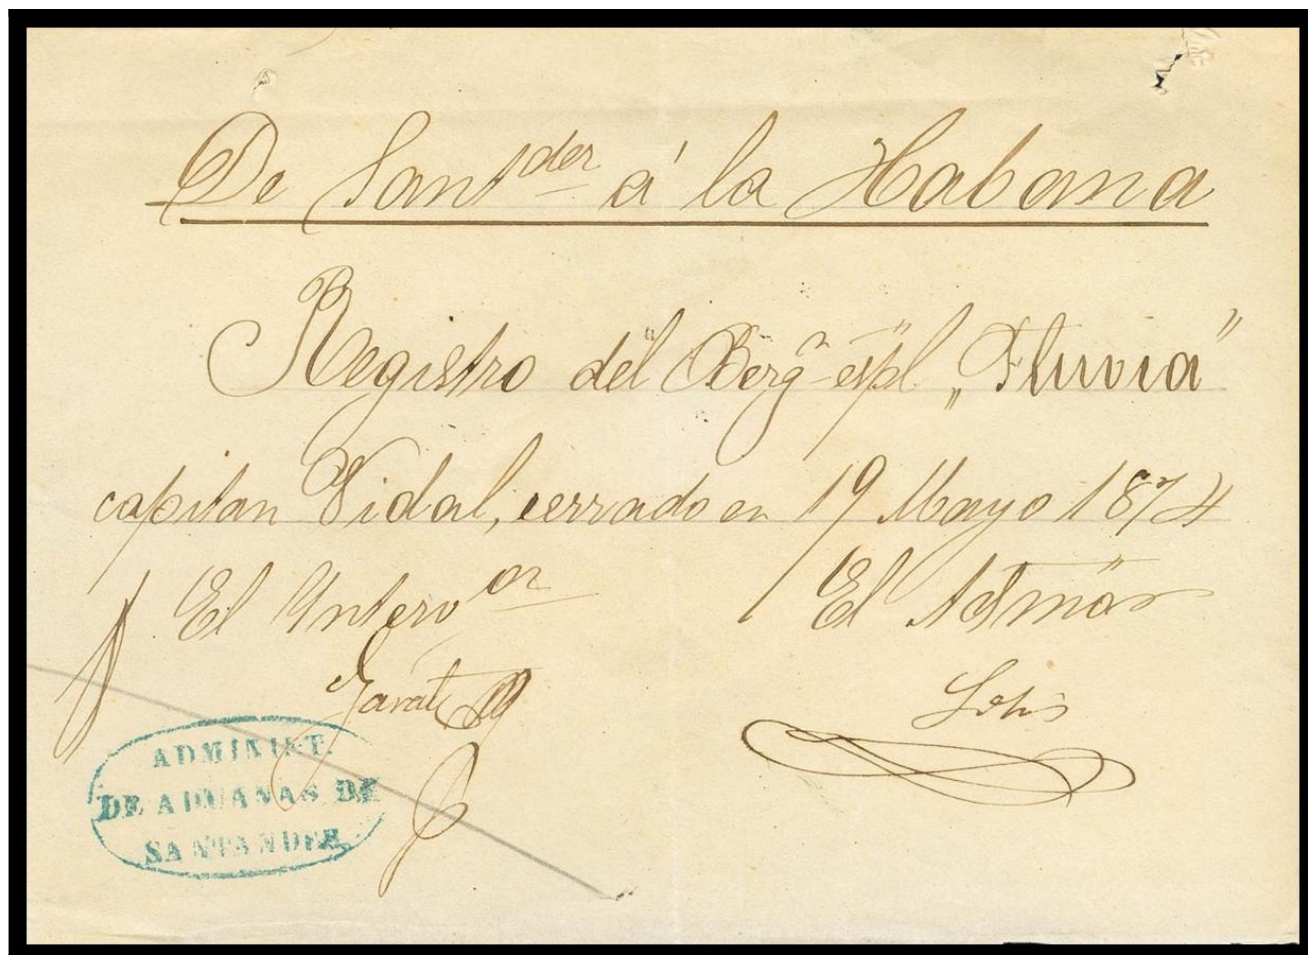 De Sant^der á la Habana
Registro del Berg^n espl. „Fluvia"
capitan Vidal, cerrado en 19 Mayo 1874
El Interv^or
El Admor
ADMINIST.
DE ADUANAS DE
SANTANDER